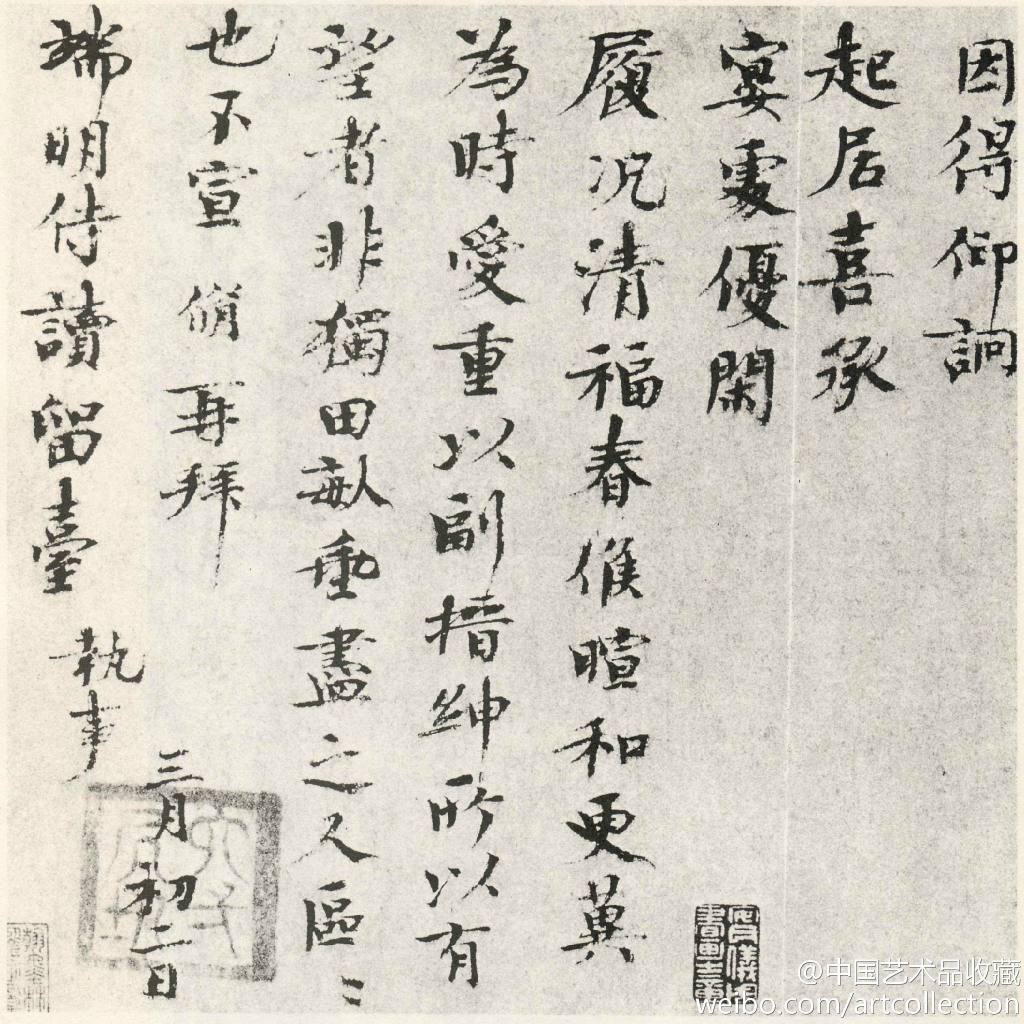 因得仰詗
起居喜承
宴處優閑
履況清福春候暄和更冀
為時愛重以副搢紳所以有
望者非獨田畝垂盡之人區〻
也不宣 脩再拜
三月初二日
端明侍讀留臺 執事
@中国艺术品收藏
weibo.com/artcollection